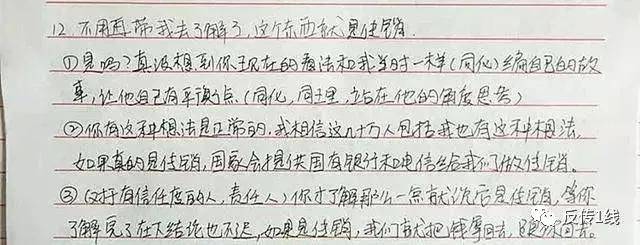 12. 不用再带我去了解了，这个东西就是传销.
①是吗？真没想到你现在的看法和我当时一样(同化)编自己的故
事，让他自己有平衡点(同化，同理，站在他的角度思考)
②你有这种想法是正常的，我相信这几十万人包括我也有这种想法.
如果真的是传销，国家会提供国有银行和电信给我们做传销.
③(对于有信任度的人，责任人)你才了解那么一点就说后是传销，等你
了解完了在下结论也不迟，如果是传销，我们就把钱拿回去，跟你回去.
反传1线